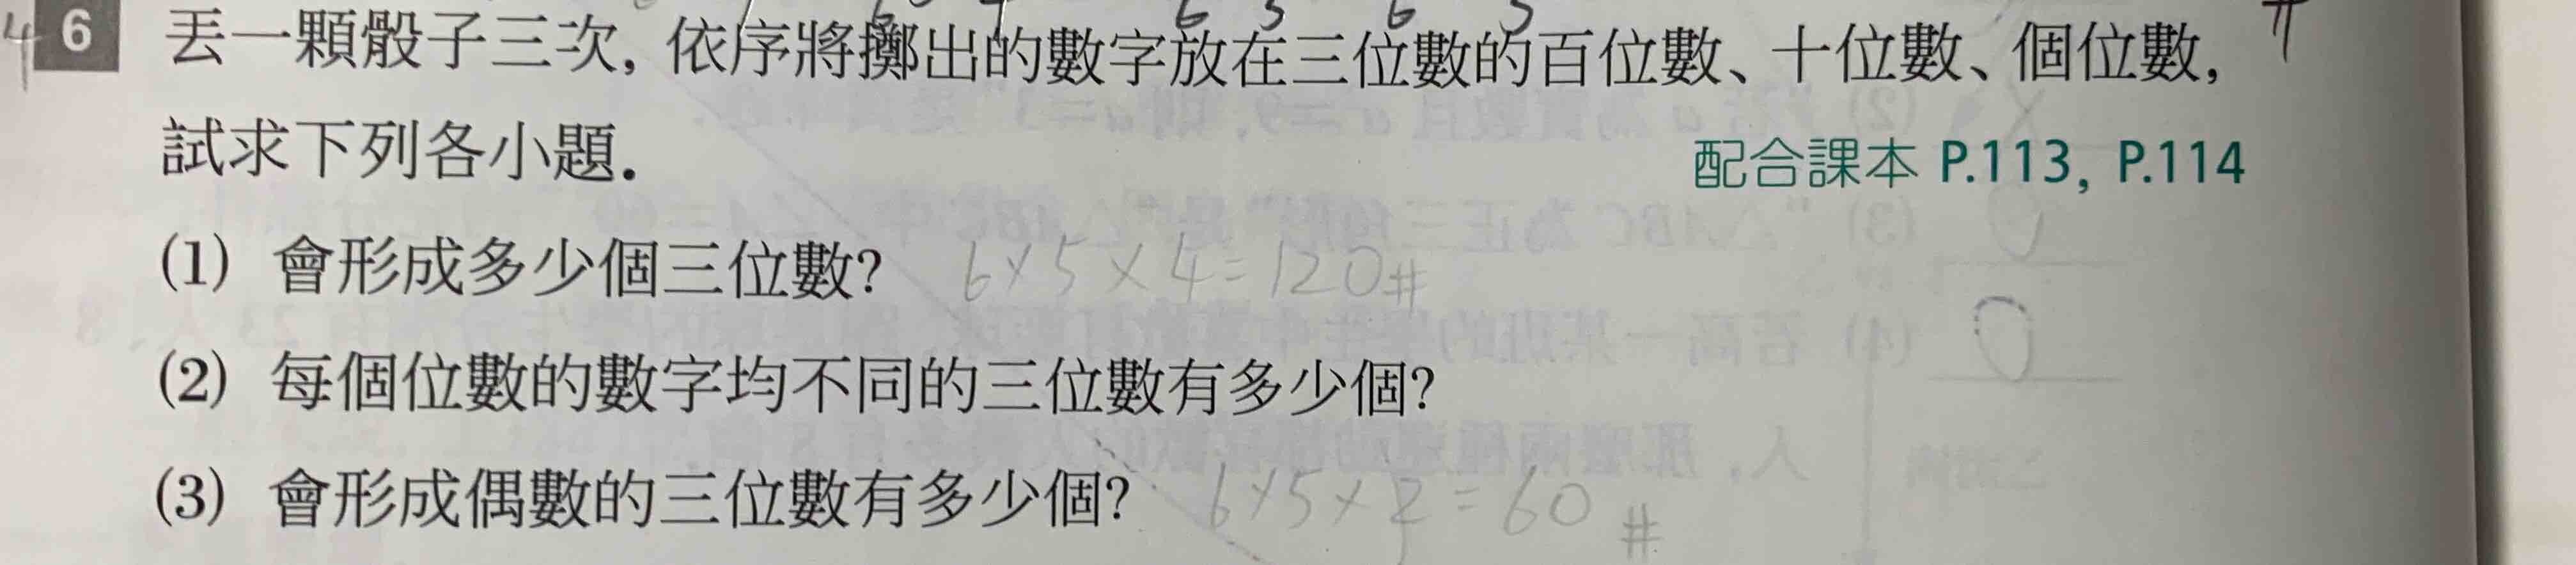 6 丟一顆骰子三次，依序將擲出的數字放在三位數的百位數、十位數、個位數，
試求下列各小題．
配合課本 P.113, P.114
(1) 會形成多少個三位數？ 6×5×4=120#
(2) 每個位數的數字均不同的三位數有多少個？
(3) 會形成偶數的三位數有多少個？ 6×5×2=60#